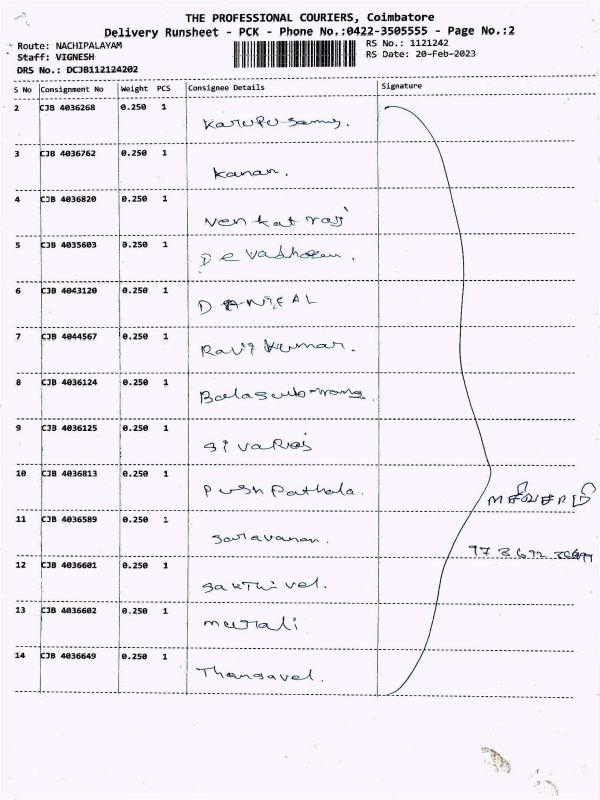 THE PROFESSIONAL COURIERS, Coimbatore
Delivery Runsheet - PCK - Phone No.:0422-3505555 - Page No.:2
Route: NACHIPALAYAM RS No.: 1121242
Staff: VIGNESH RS Date: 20-Feb-2023
DRS No.: DCJB112124202
S No Consignment No Weight PCS Consignee Details Signature
2 CJB 4036268 0.250 1 Karupusamy.
3 CJB 4036762 0.250 1 Kanan.
4 CJB 4036820 0.250 1 Venkatraj
5 CJB 4035603 0.250 1
6 CJB 4043120 0.250 1 DANIEAL
7 CJB 4044567 0.250 1 Ravikumar.
8 CJB 4036124 0.250 1
9 CJB 4036125 0.250 1 SivaRaj
10 CJB 4036813 0.250 1 PushPathala.
11 CJB 4036589 0.250 1 Saravanan.
12 CJB 4036601 0.250 1 Sakthivel.
13 CJB 4036602 0.250 1 Murali
14 CJB 4036649 0.250 1 Thangavel.